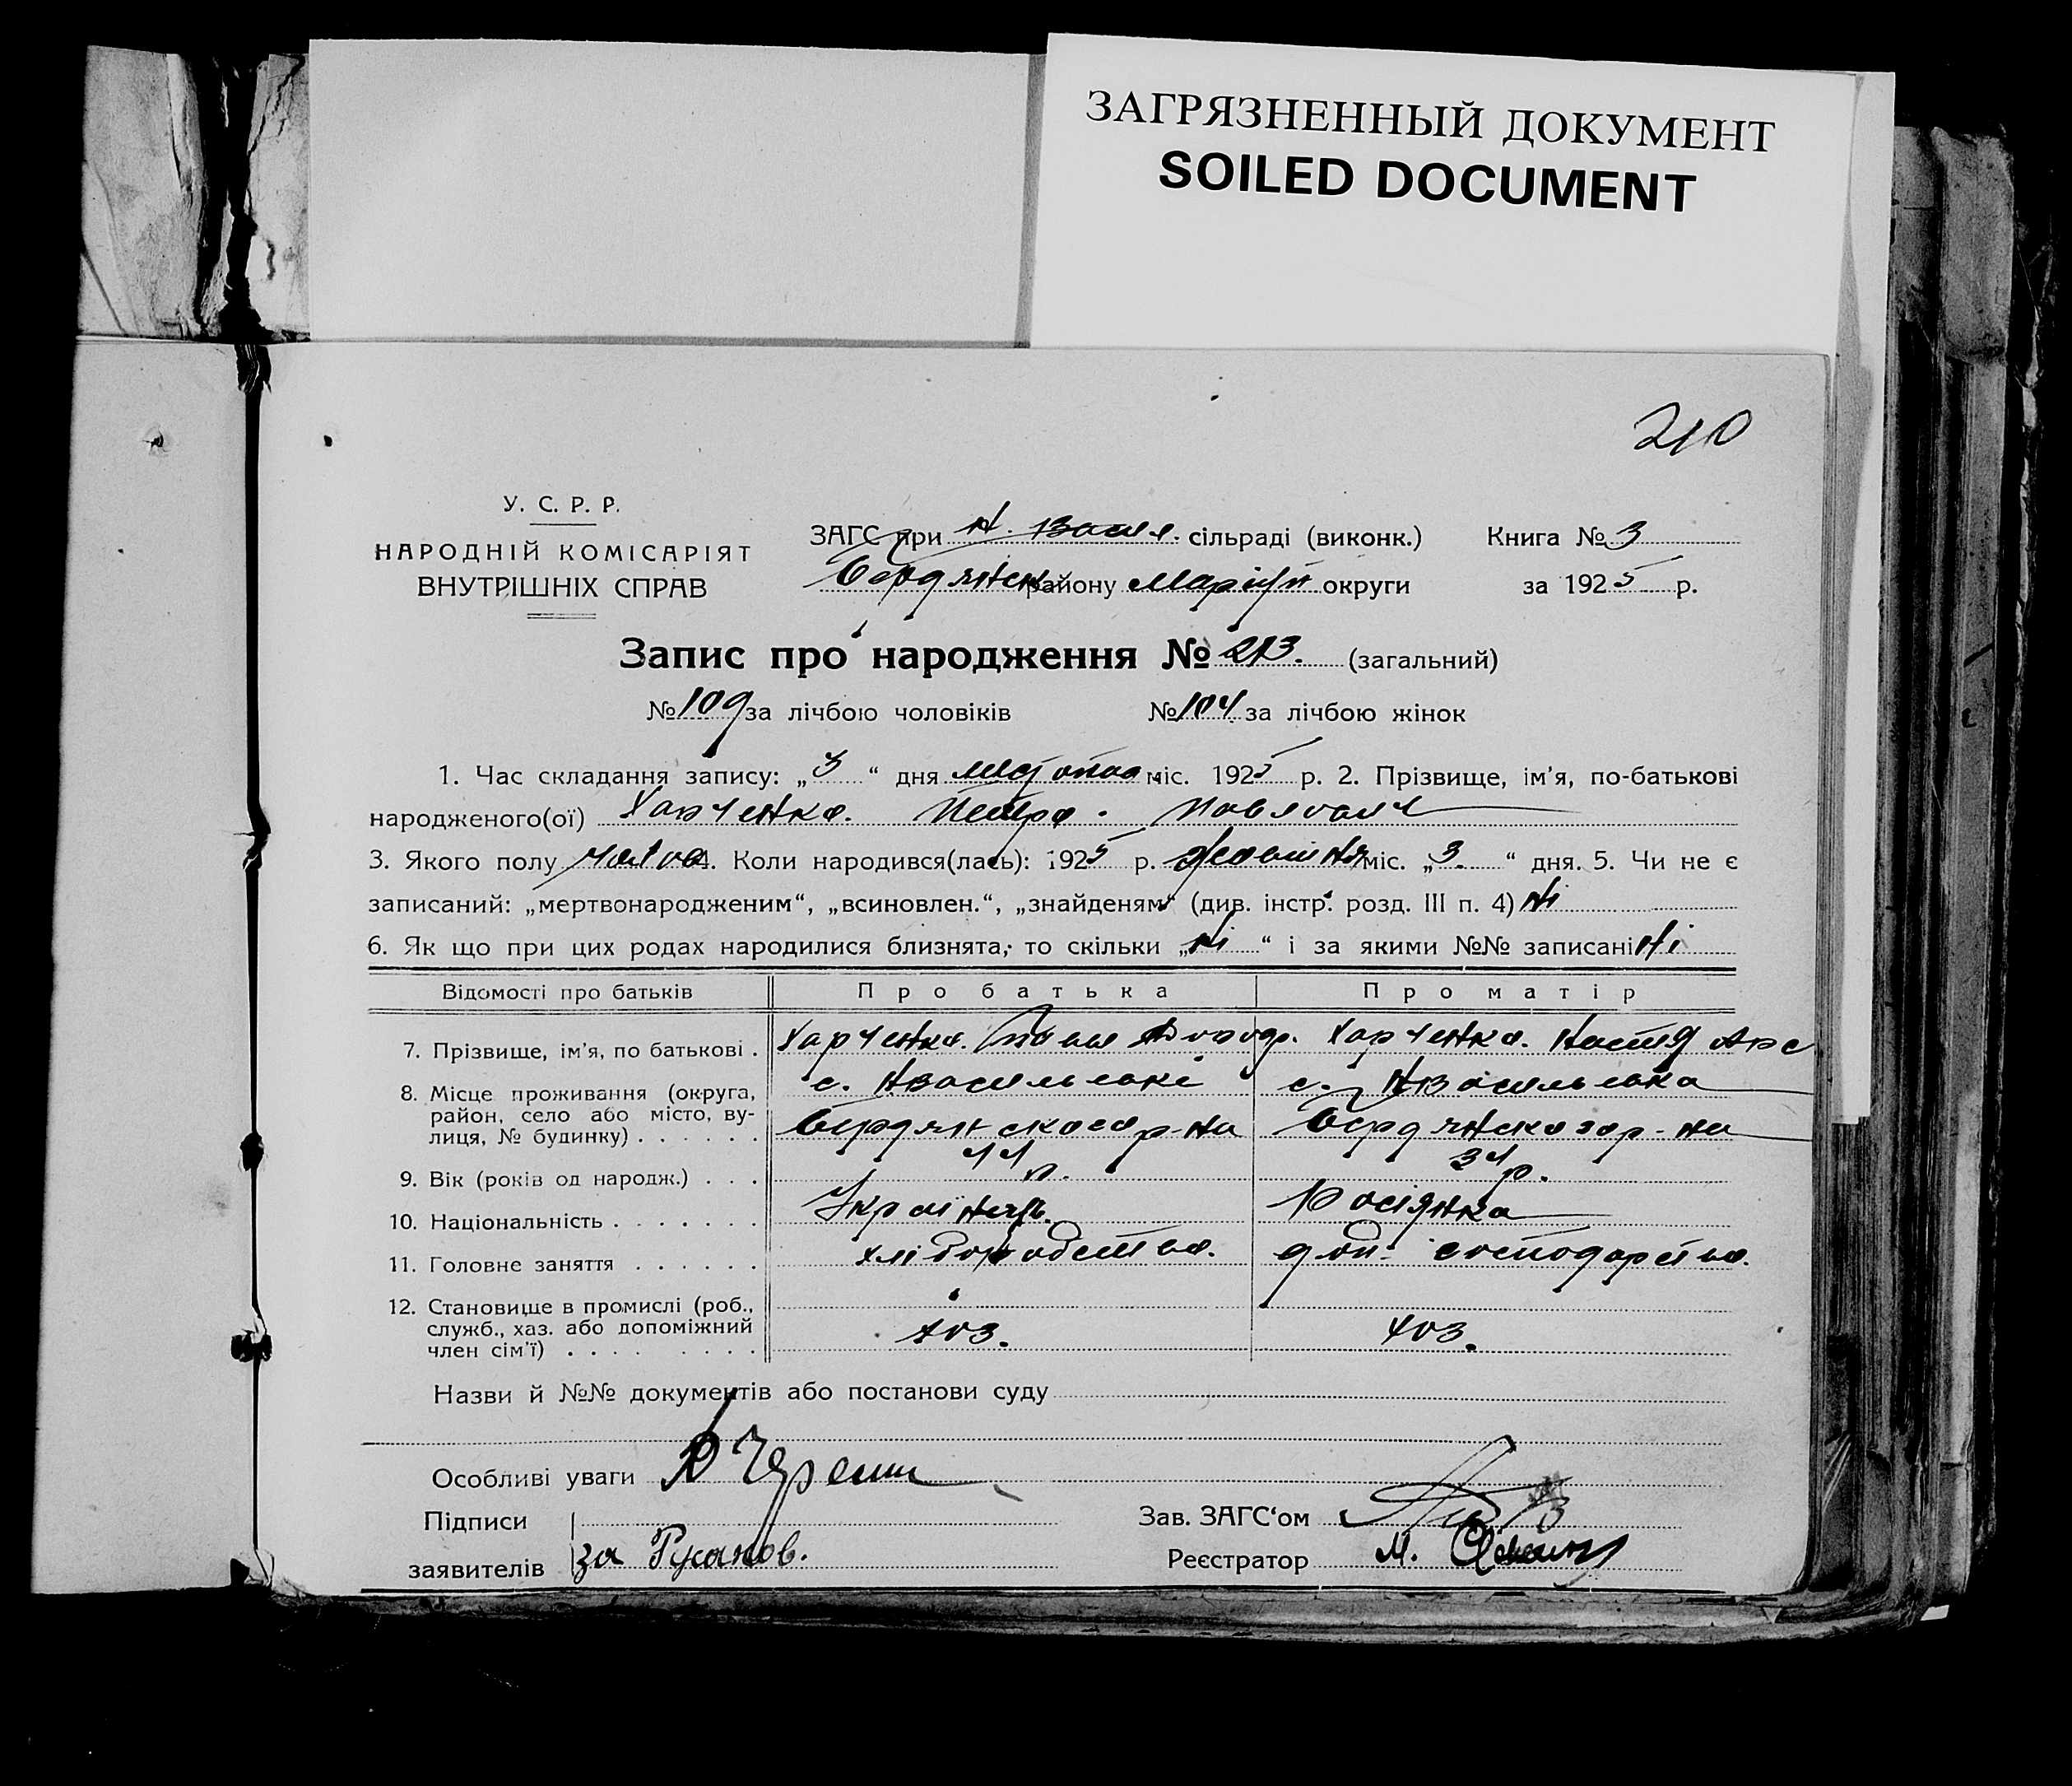 ЗАГРЯЗНЕННЫЙ ДОКУМЕНТ
SOILED DOCUMENT
210
У. С. Р. Р.
НАРОДНІЙ КОМІСАРІЯТ
ВНУТРІШНІХ СПРАВ
ЗАГС при Н. Васил. сільраді (виконк.) Книга № 3
Бердянск району Маріуп округи за 1925 р.
Запис про народження № 213. (загальний)
№ 109 за лічбою чоловіків № 104 за лічбою жінок
1. Час складання запису: „3“ дня міс. 1925 р. 2. Прізвище, ім'я, по-батькові
народженого(ої) Харченко. Петро. Павлович
3. Якого полу 4. Коли народився(лась): 1925 р. Жовтня міс. „3.“ дня. 5. Чи не є
записаний: „мертвонародженим“, „всиновлен.“, „знайденям“ (див. інстр. розд. III п. 4) Ні
6. Як що при цих родах народилися близнята, то скільки „Ні“ і за якими №№ записані Ні
Відомості про батьків Про батька Про матір
7. Прізвище, ім'я, по батькові . Харченко. Харченко. Настя
8. Місце проживання (округа, район, село або місто, вулиця, № будинку) . . . . . . с. с.
Бердянского р-на Бердянского р-на
9. Вік (років од народж.) . . . 44 р. 34 р.
10. Національність . . . . . . . Українець. Росіянка
11. Головне заняття . . . . . . хліборобство. дом. господарство.
12. Становище в промислі (роб., служб., хаз. або допоміжний член сім'ї) . . . . . . . .
Назви й №№ документів або постанови суду
Особливі уваги
Підписи Зав. ЗАГС‘ом
заявителів за Русанов. Реєстратор М.